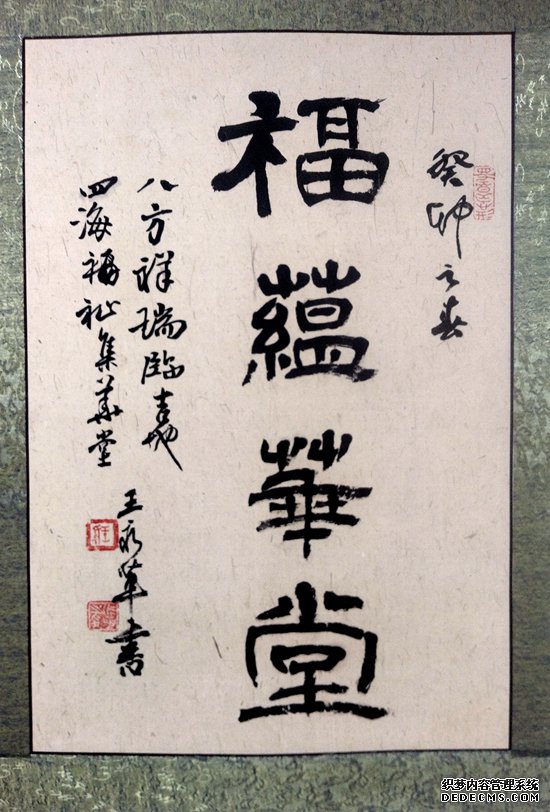 癸卯之春
福蘊華堂
八方祥瑞臨吉地
四海福祉集華堂
王永革書
织梦内容管理系统
DEDECMS.COM